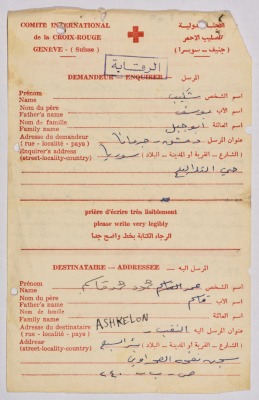 COMITÉ INTERNATIONAL
de la CROIX-ROUGE
GENÈVE - (Suisse)
اللجنة الدولية
للصليب الاحمر
(جنيف - سويسرا)
الرقابة
DEMANDEUR - ENQUIRER المرسل
Prénom
Name
اسم الشخص
Nom du père
Father's name
اسم الاب يوسف
Nom de famille
Family name
اسم العائلة ابو جبل
Adresse du demandeur
(rue - localité - pays)
Enquirer's address
(street-locality-country)
عنوان المرسل دمشق - جرمانا
(الشارع - القرية أو المدينة - البلاد) سوريا
حي
prière d'écrire très lisiblement
please write very legibly
الرجاء الكتابة بخط واضح جداً
DESTINATAIRE - ADDRESSEE المرسل اليه
Prénom
Name
اسم الشخص
Nom du père
Father's name
اسم الاب قاسم
Nom de famille
Family name
اسم العائلة
ASHKELON
Adresse du destinataire
(rue - localité - pays)
Address
(street-locality-country)
عنوان المرسل اليه النقب -
(الشارع - القرية أو المدينة - البلاد) بئر السبع
سجن نفحة الصحراوي
ص - ب - ٤٤٠